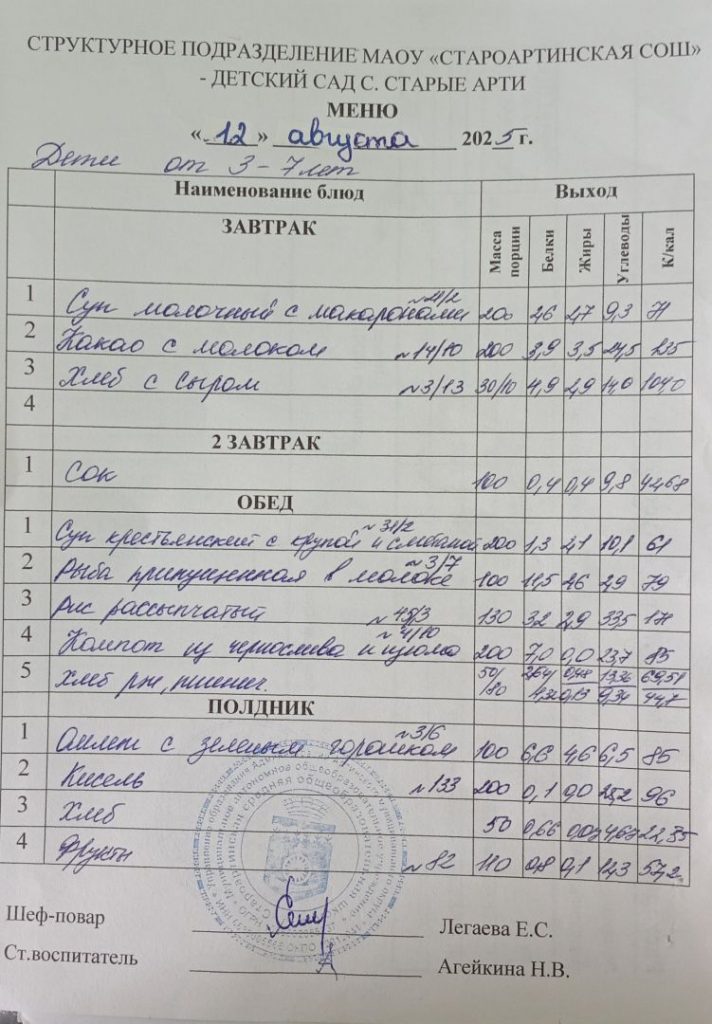 СТРУКТУРНОЕ ПОДРАЗДЕЛЕНИЕ МАОУ «СТАРОАРТИНСКАЯ СОШ»
- ДЕТСКИЙ САД С. СТАРЫЕ АРТИ
МЕНЮ
« 12 » августа 2025 г.
Дети от 3-7 лет
Наименование блюд Выход
ЗАВТРАК Масса порции Белки Жиры Углеводы К/кал
1 Суп молочный с макаронами 200 2,6 2,7 9,3 71
2 Какао с молоком №14/10 200 3,9 3,5
3 Хлеб с сыром №3/13 30/10 4,9 2,9 14,0 104,0
4
2 ЗАВТРАК
1 Сок 100 0,4 0,4 9,8
ОБЕД
1 Суп крестьянский с крупой и сметаной 200 1,3 2,1 10,1 61
2 Рыба припущенная в молоке №3/7 100 11,5 2,6 2,9 79
3 Рис рассыпчатый №45/3 130 3,2 2,9 33,5 171
4 Компот из чернослива и изюма №4/10 200 7,0 0,0 23,7 85
5 Хлеб рж, пшенич. 69,51
44,7
ПОЛДНИК
1 Омлет с зеленым горошком №3/6 100 6,6 4,6 6,5 85
2 Кисель №133 200 0,1 0,0 25,2 96
3 Хлеб 50 0,66
4 Фрукты №82 110 0,8 0,1 12,3 57,2
Шеф-повар Легаева Е.С.
Ст.воспитатель Агейкина Н.В.